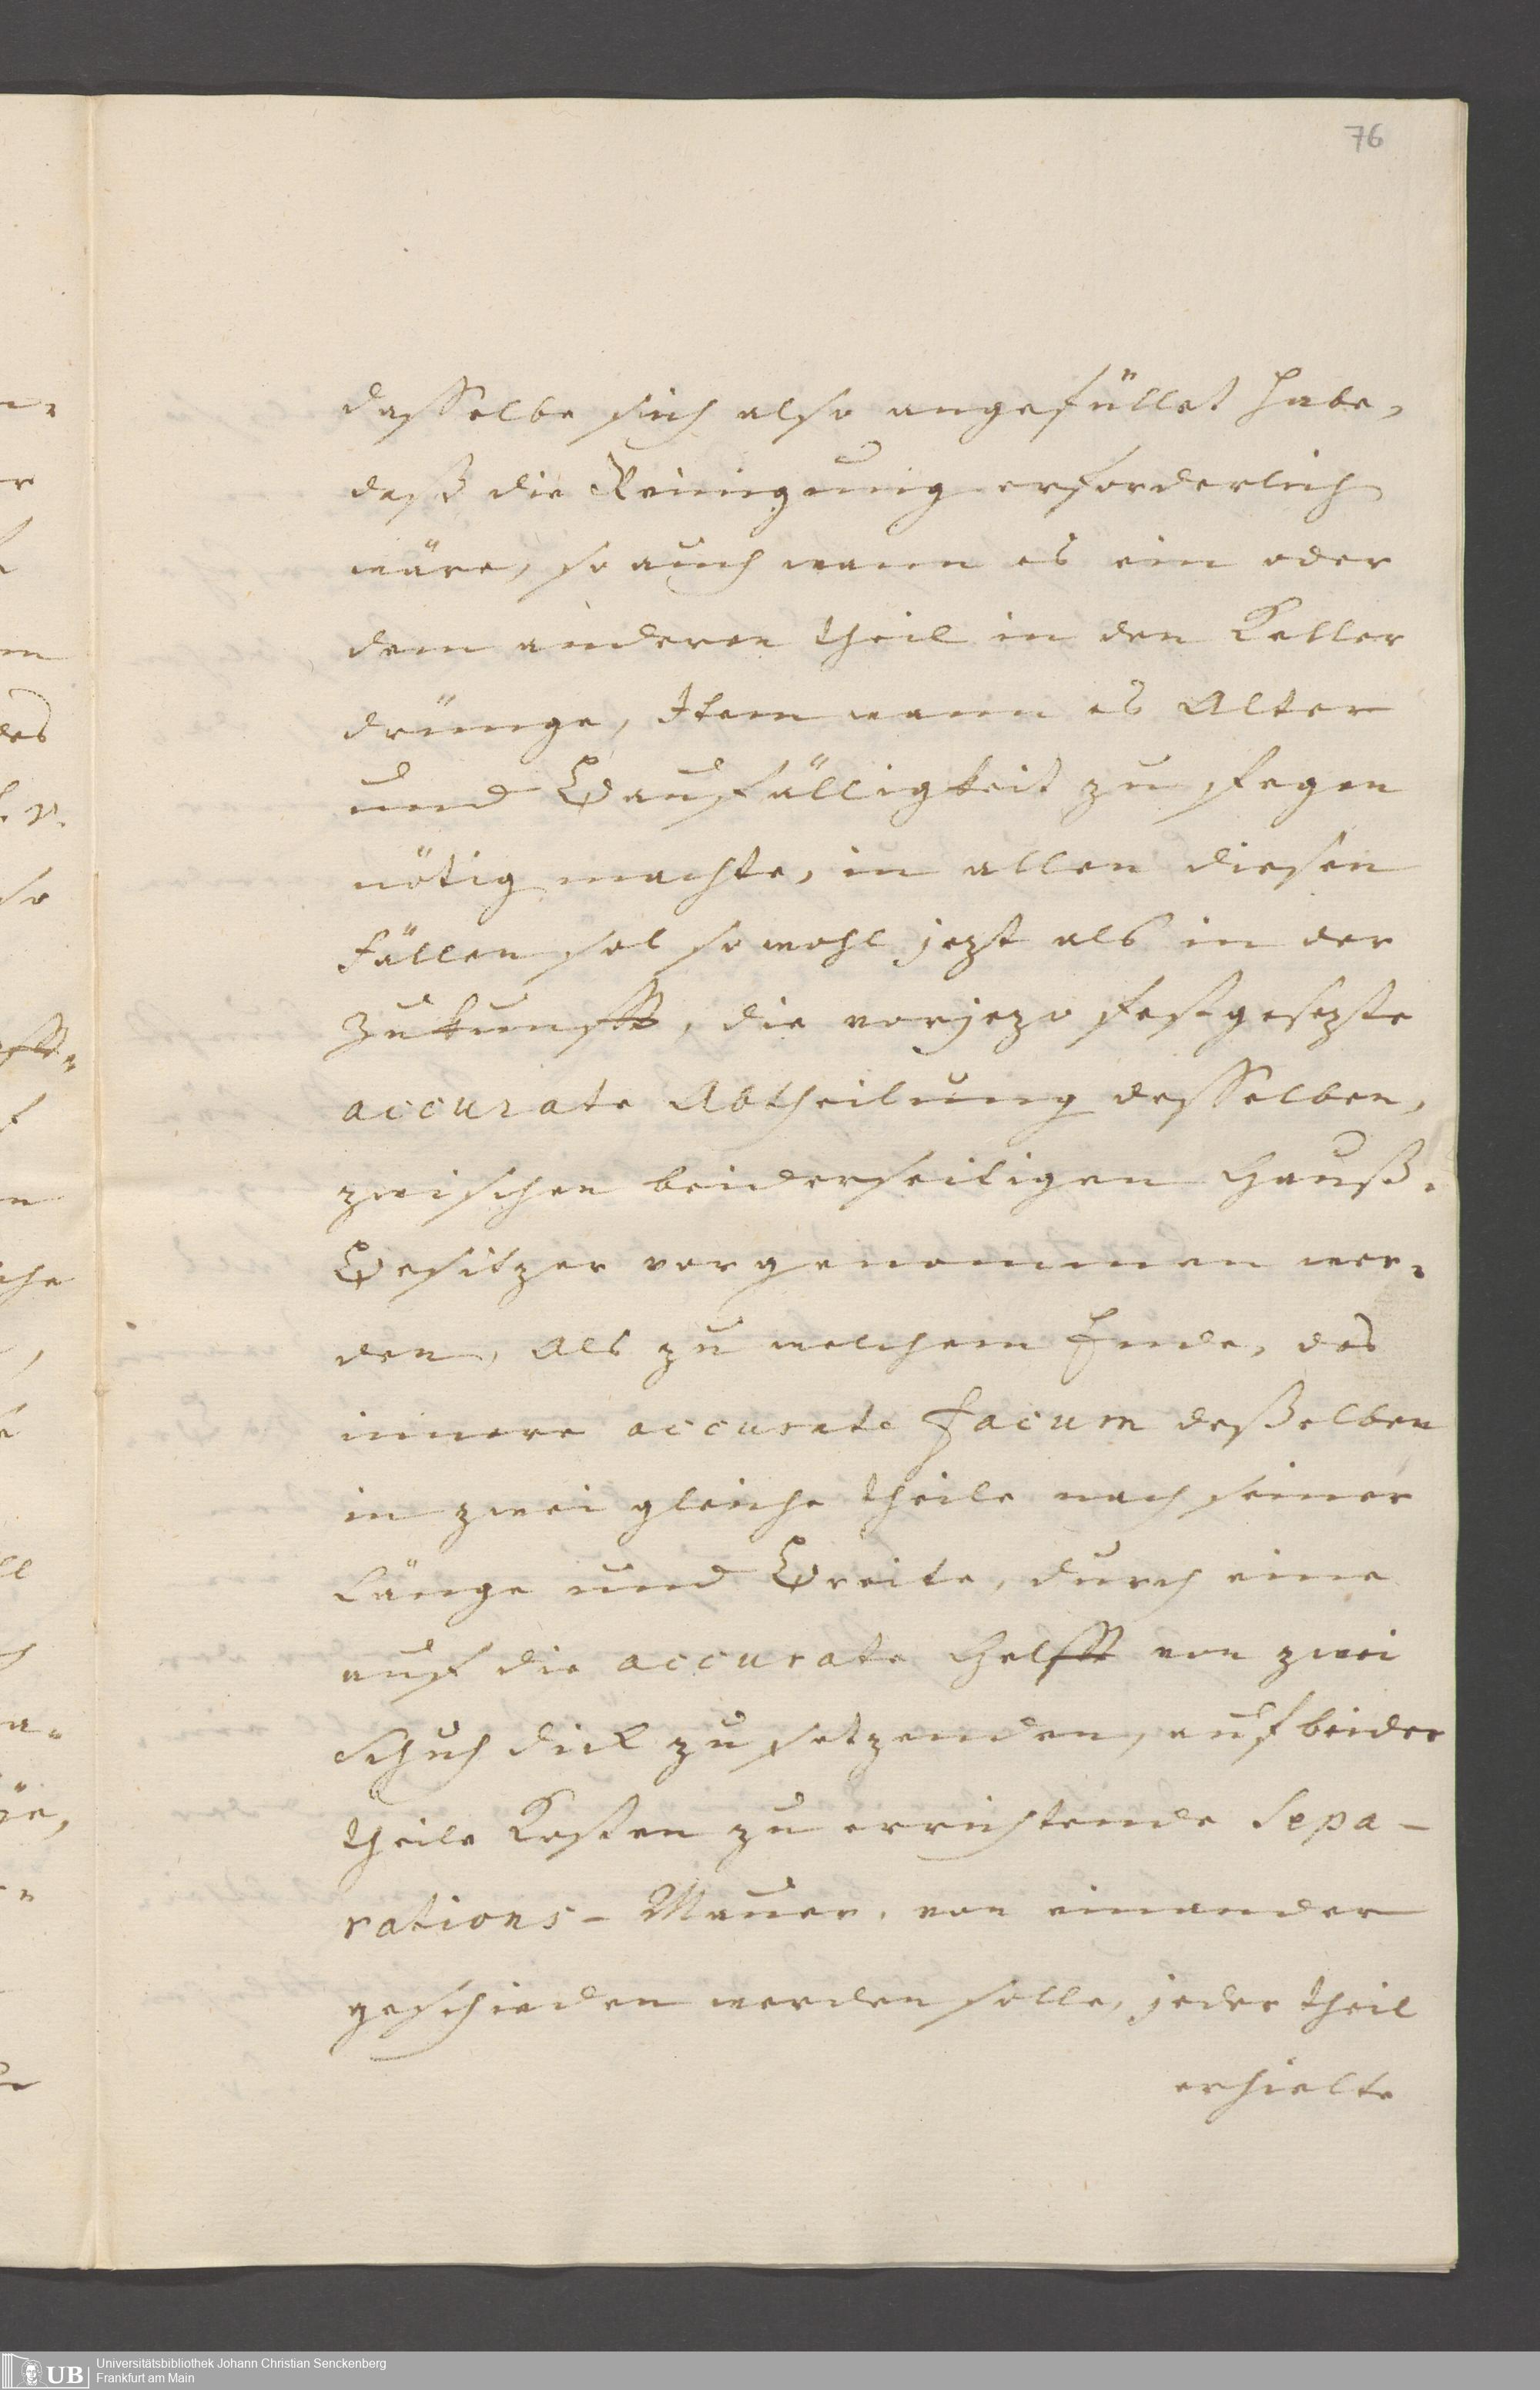 76
dasselbe sich also angefüllet habe,
daß die Reinigung erforderlich
wäre, so auch wann es ein oder
dem anderen theil in den Keller
drünge, Item wann es Alter
und Baufälligkeit zu fegen
nötig machte, in allen diesen
Fällen sol so wohl jezt als in der
Zukunfft, die vorjezo festgesezte
accurate Abtheilung desselben,
zwischen beiderseitigen Hauß-
Besitzer vorgenommen wer-
den, Als zu welchem Ende, das
innere accurate desselben
in zwei gleiche theile nach seiner
Länge und Breite, durch eine
auf die accurate Helfft von zwei
Schuh dick zu setzenden, auf beider
theile Kosten zu errichtende Sepa-
rations-Mauer, von einander
geschieden werden solle, jeder theil
erhielte
UB
Universitätsbibliothek Johann Christian Senckenberg
Frankfurt am Main